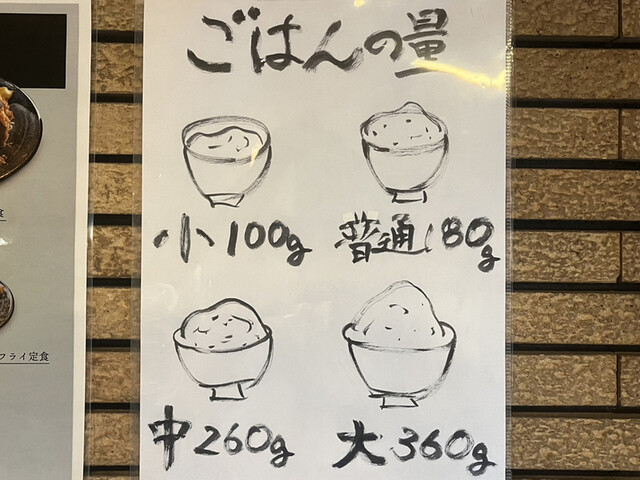 ごはんの量
小100g
普通180g
中260g
大360g
フライ定食